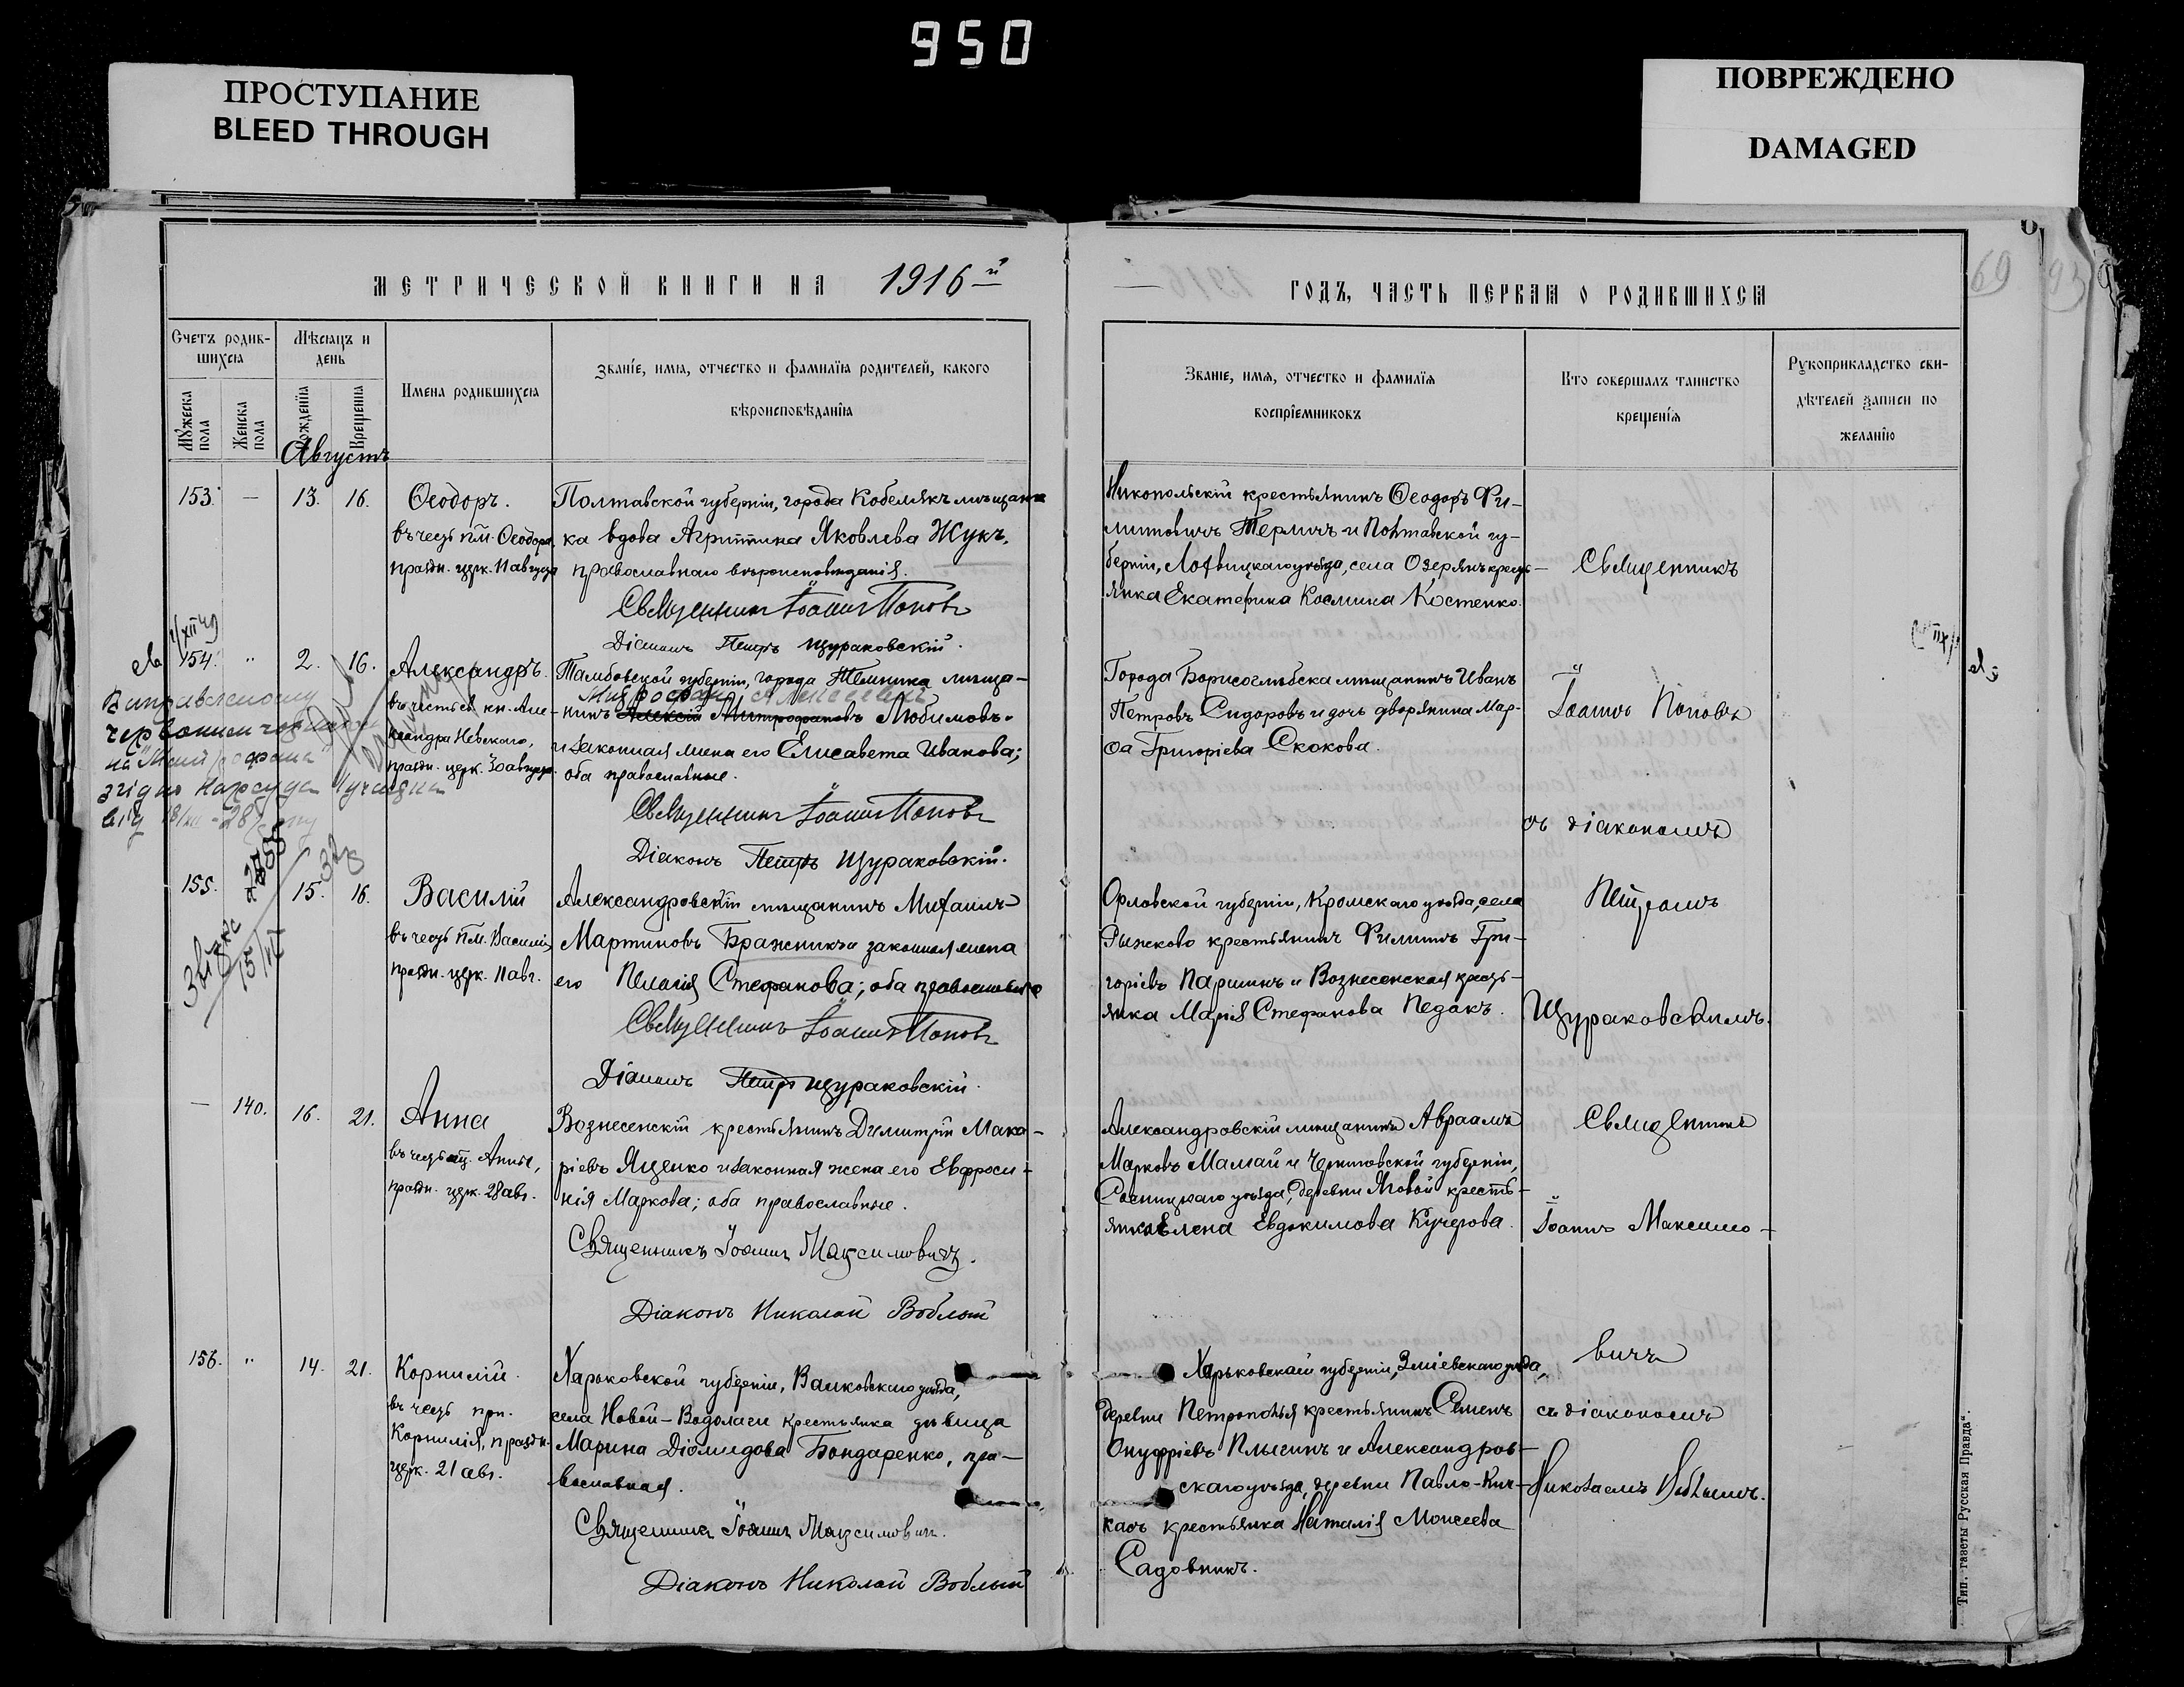 950
ПРОСТУПАНИЕ
BLEED THROUGH
ПОВРЕЖДЕНО
DAMAGED
МЕТРИЧЕСКОЙ КНИГИ НА 1916й
Счетъ родив-
шихся
Мѣсяцъ и
день
Мужеска
пола
Женска
пола
Рожденія
Крещенія
Имена родившихся
Званіе, имя, отчество и фамилія родителей, какого
вѣроисповѣданія
Августъ
153. — 13. 16. Ѳеодоръ.
въ честь пм. Ѳеодора,
праздн. церк. 11 августа
Полтавской губерніи, города Кобелякъ мѣщан
ка вдова Агриппина Яковлева Жукъ,
православнаго вѣроисповѣданія.
Священникъ Іоаннъ Поповъ
Діаконъ Петръ Щураковскій.
154. " 2. 16. Александръ.
въ честь св. кн. Але-
ксандра Невскаго,
праздн. церк. 30 августа.
Тамбовской губерніи, города Темника мѣща-
Митрофанъ Алексеевичъ
нинъ Алексій Митрофановъ Любимовъ
и законная жена его Елисавета Иванова;
оба православные.
Священникъ Іоаннъ Поповъ
Діаконъ Петръ Щураковскій.
Виправленому
червоним чорнилом
на "Митрофана"
згідно Нарсуда
від 18/
155. 15. 16. Василій
въ честь пм. Василія,
праздн. церк. 11 авг.
Александровскій мѣщанинъ Михаилъ
Мартиновъ Бражникъ и законная жена
его Пелагія Стефанова; оба православные
Священникъ Іоаннъ Поповъ
Діаконъ Петръ Щураковскій.
— 140. 16. 21. Анна
въ честь мц. Анны,
праздн. церк. 28 авг.
Вознесенскій крестьянинъ Димитрій Мака-
ріевъ Яценко и законная жена его Евфроси-
нія Маркова; оба православные.
Священникъ Іоаннъ Максимовичъ.
Діаконъ Николай Воблый
156. " 14. 21. Корнилій.
въ честь прп.
Корнилія, праздн.
церк. 21 авг.
Харьковской губерніи, Валковскаго уѣзда,
села Новой-Водолаги крестьянка дѣвица
Марина Діомидова Бондаренко, пра-
вославная.
Священникъ Іоаннъ Максимовичъ.
Діаконъ Николай Воблый
ГОДЪ, ЧАСТЬ ПЕРВАЯ О РОДИВШИХСЯ
69
Званіе, имя, отчество и фамилія
воспріемниковъ
Кто совершалъ таинство
крещенія
Рукоприкладство сви-
дѣтелей записи по
желанію
Никопольскій крестьянинъ Ѳеодоръ Фи-
липповичъ Термичъ и Полтавской гу-
берніи, Лохвицкаго уѣзда, села Озерянъ кресть-
янка Екатерина Космина Костенко.
Города Борисоглѣбска мѣщанинъ Иванъ
Петровъ Сидоровъ и дочь дворянина Мар-
ѳа Григоріева Скокова.
Орловской губерніи, Кромскаго уѣзда, села
Рыжково крестьянинъ Филиппъ Гри-
горіевъ Паршинъ и Вознесенская кресть-
янка Марія Стефанова Педакъ.
Священникъ
Іоаннъ Поповъ
съ діакономъ
Петромъ
Щураковскимъ.
Александровскій мѣщанинъ Авраамъ
Марковъ Мамай и Черниговской губерніи,
Сосницкаго уѣзда, деревни Мовой кресть-
янка Елена Евдокимова Кучерова.
Харьковской губерніи, Зміевскаго уѣзда,
деревни Петрополья крестьянинъ Семенъ
Онуфріевъ Плысинъ и Александров-
скаго уѣзда, деревни Павло-Кич-
касъ крестьянка Наталія Моисеева
Садовникъ.
Священникъ
Іоаннъ Максимо-
вичъ
съ діакономъ
Николаемъ Воблымъ.
Тип. газеты „Русская Правда“.